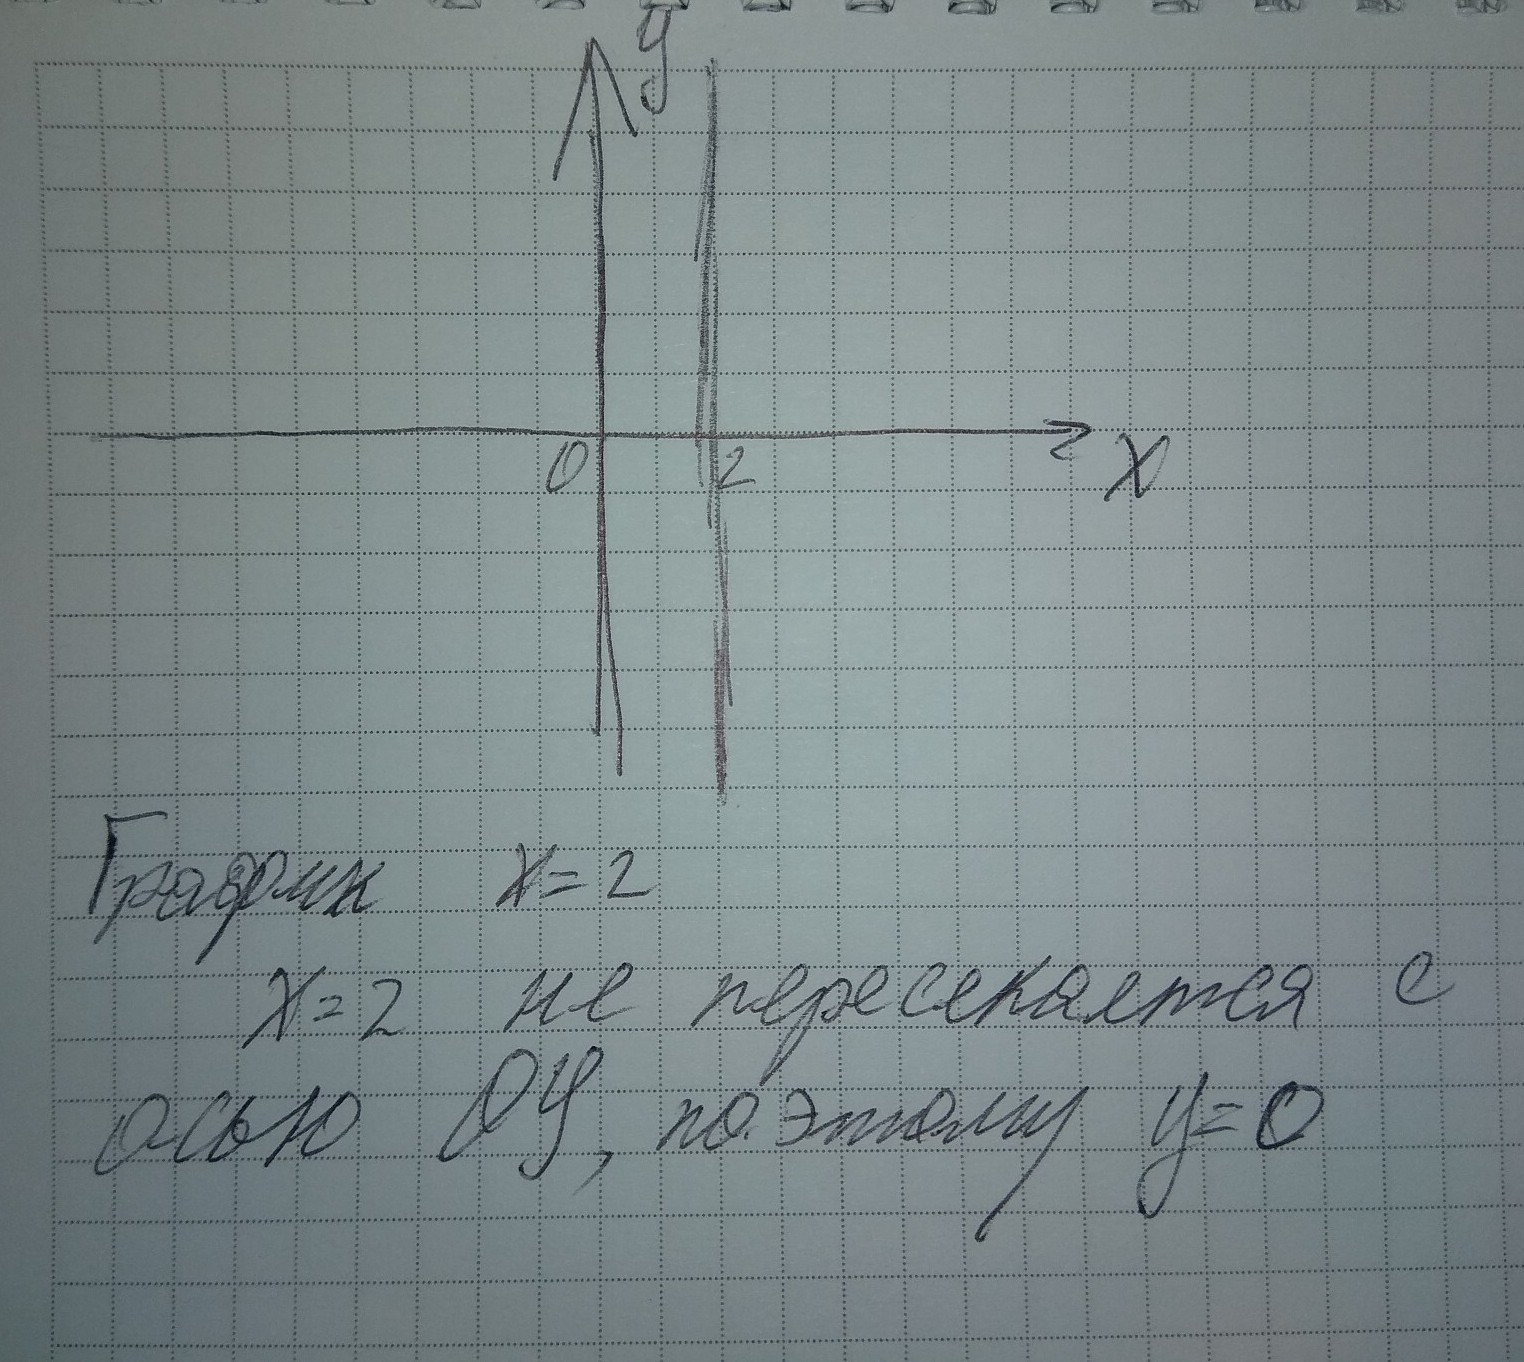 y
0 2 x
График x=2
x=2 не пересекается с
осью OY, поэтому y=0